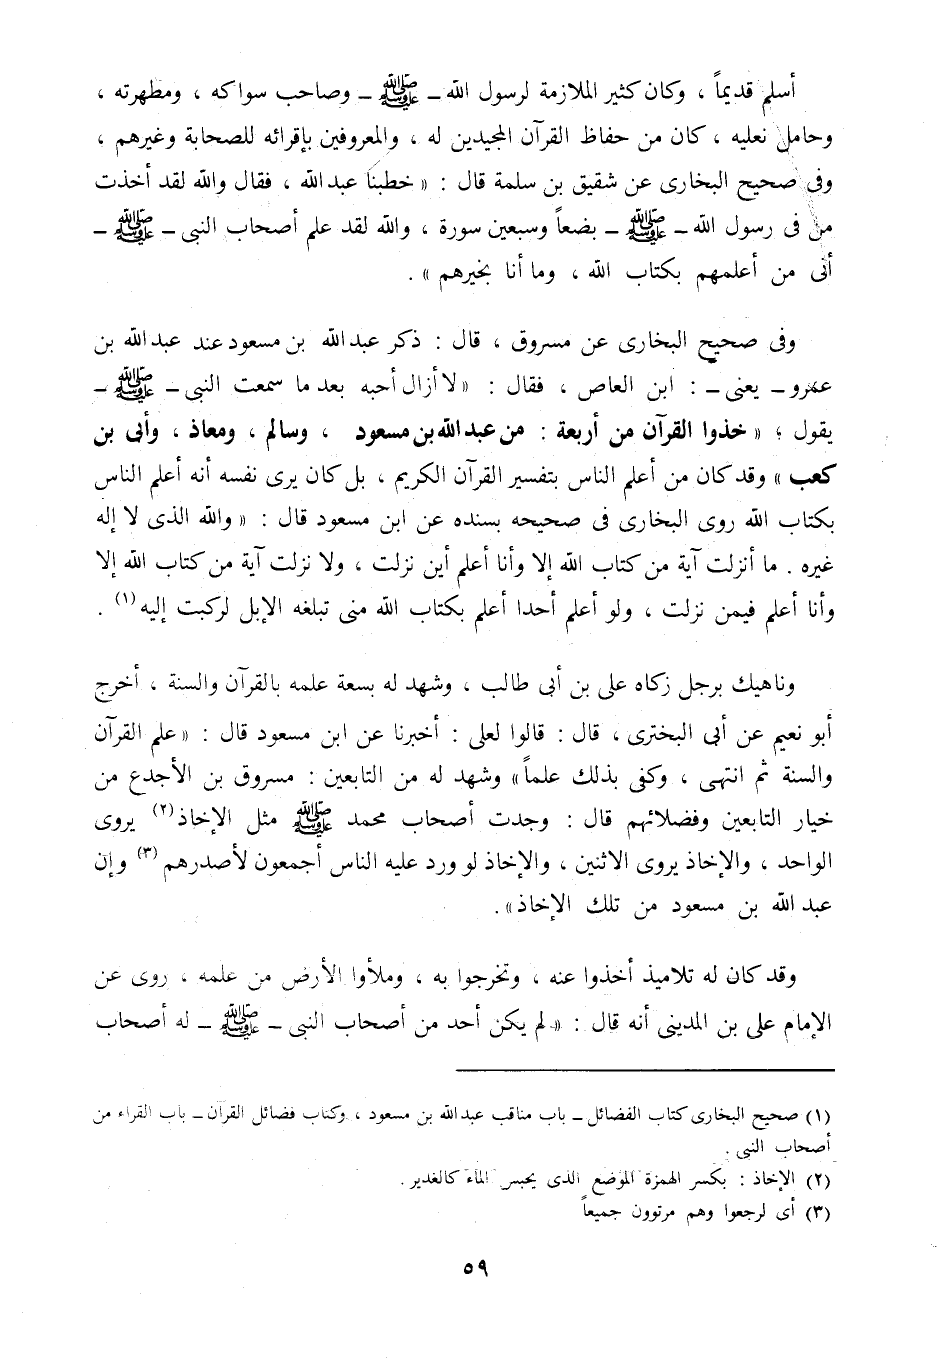 أسلم قديماً ، وكان كثير الملازمة لرسول الله ـ ﷺ ـ وصاحب سواكه ، ومطهرته ،
وحامل نعليه ، كان من حفاظ القرآن المجيدين له ، والمعروفين بإقرائه للصحابة وغيرهم ،
وفى صحيح البخارى عن شقيق بن سلمة قال : « خطبنا عبد الله ، فقال والله لقد أخذت
من فى رسول الله ـ ﷺ ـ بضعاً وسبعين سورة ، والله لقد علم أصحاب النبى ـ ﷺ ـ
أنى من أعلمهم بكتاب الله ، وما أنا بخيرهم » .
وفى صحيح البخارى عن مسروق ، قال : ذكر عبد الله بن مسعود عند عبد الله بن
عمرو ـ يعنى ـ : ابن العاص ، فقال : « لا أزال أحبه بعد ما سمعت النبى ـ ﷺ ـ
يقول ؛ « خذوا القرآن من أربعة : من عبد الله بن مسعود ، وسالم ، ومعاذ ، وأبى بن
كعب » وقد كان من أعلم الناس بتفسير القرآن الكريم ، بل كان يرى نفسه أنه أعلم الناس
بكتاب الله روى البخارى فى صحيحه بسنده عن ابن مسعود قال : « والله الذى لا إله
غيره . ما أنزلت آية من كتاب الله إلا وأنا أعلم أين نزلت ، ولا نزلت آية من كتاب الله إلا
وأنا أعلم فيمن نزلت ، ولو أعلم أحدا أعلم بكتاب الله منى تبلغه الإبل لركبت إليه (١) .
وناهيك برجل زكاه على بن أبى طالب ، وشهد له بسعة علمه بالقرآن والسنة ، أخرج
أبو نعيم عن أبى البخترى ، قال : قالوا لعلى : أخبرنا عن ابن مسعود قال : « علم القرآن
والسنة ثم انتهى ، وكفى بذلك علماً » وشهد له من التابعين : مسروق بن الأجدع من
خيار التابعين وفضلائهم قال : وجدت أصحاب محمد ﷺ مثل الإخاذ (٢) يروى
الواحد ، والإخاذ يروى الاثنين ، والإخاذ لو ورد عليه الناس أجمعون لأصدرهم (٣) وإن
عبد الله بن مسعود من تلك الإخاذ » .
وقد كان له تلاميذ أخذوا عنه ، وتخرجوا به ، وملأوا الأرض من علمه ، روى عن
الإمام على بن المدينى أنه قال : « لم يكن أحد من أصحاب النبى ـ ﷺ ـ له أصحاب
(١) صحيح البخارى كتاب الفضائل ـ باب مناقب عبد الله بن مسعود ، وكتاب فضائل القرآن ـ باب القراء من
أصحاب النبى .
(٢) الإخاذ : بكسر الهمزة الموضع الذى يحبس الماء كالغدير .
(٣) أى لرجعوا وهم مرتوون جميعاً
٥٩